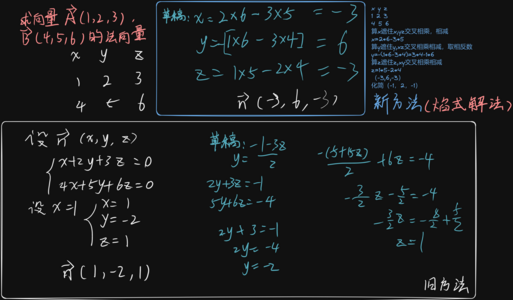 求向量 A(1,2,3),
B(4,5,6)的法向量
x y z
1 2 3
4 5 6
草稿: x=2×6-3×5 =-3
y=-[1×6-3×4] = 6
z=1×5-2×4 =-3
n(-3,6,-3)
x y z
1 2 3
4 5 6
算x遮住x,yz交叉相乘,相减
x=2*6-3*5
算y遮住y,xz交叉相乘相减,取相反数
算z遮住z,xy交叉相乘相减
z=1*5-2*4
(-3,6,-3)
化简 (-1, 2, -1)
新方法(焰式解法)
设 n(x,y,z)
x+2y+3z=0
4x+5y+6z=0
设 x=1
x=1
y=-2
z=1
n(1,-2,1)
草稿: y=-1-3z/2
2y+3z=-1
5y+6z=-4
2y+3=-1
2y=-4
y=-2
-(5+15z)/2 +6z=-4
-3/2 z-5/2=-4
-3/2 z=-8/2+5/2
z=1
旧方法